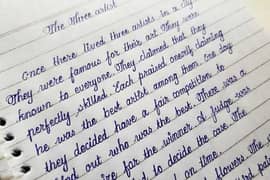 The Three artist
Once there lived three artists in a city.
They were famous for their art. They were
known to everyone. They claimed that they
perfectly skilled. Each praised oneself claiming
he was the best artist among them. One day
they decided have a fair competition to
find out who was the best. There was a
for the winner. A judge was
to decide the case. The
on time.
flowers. The